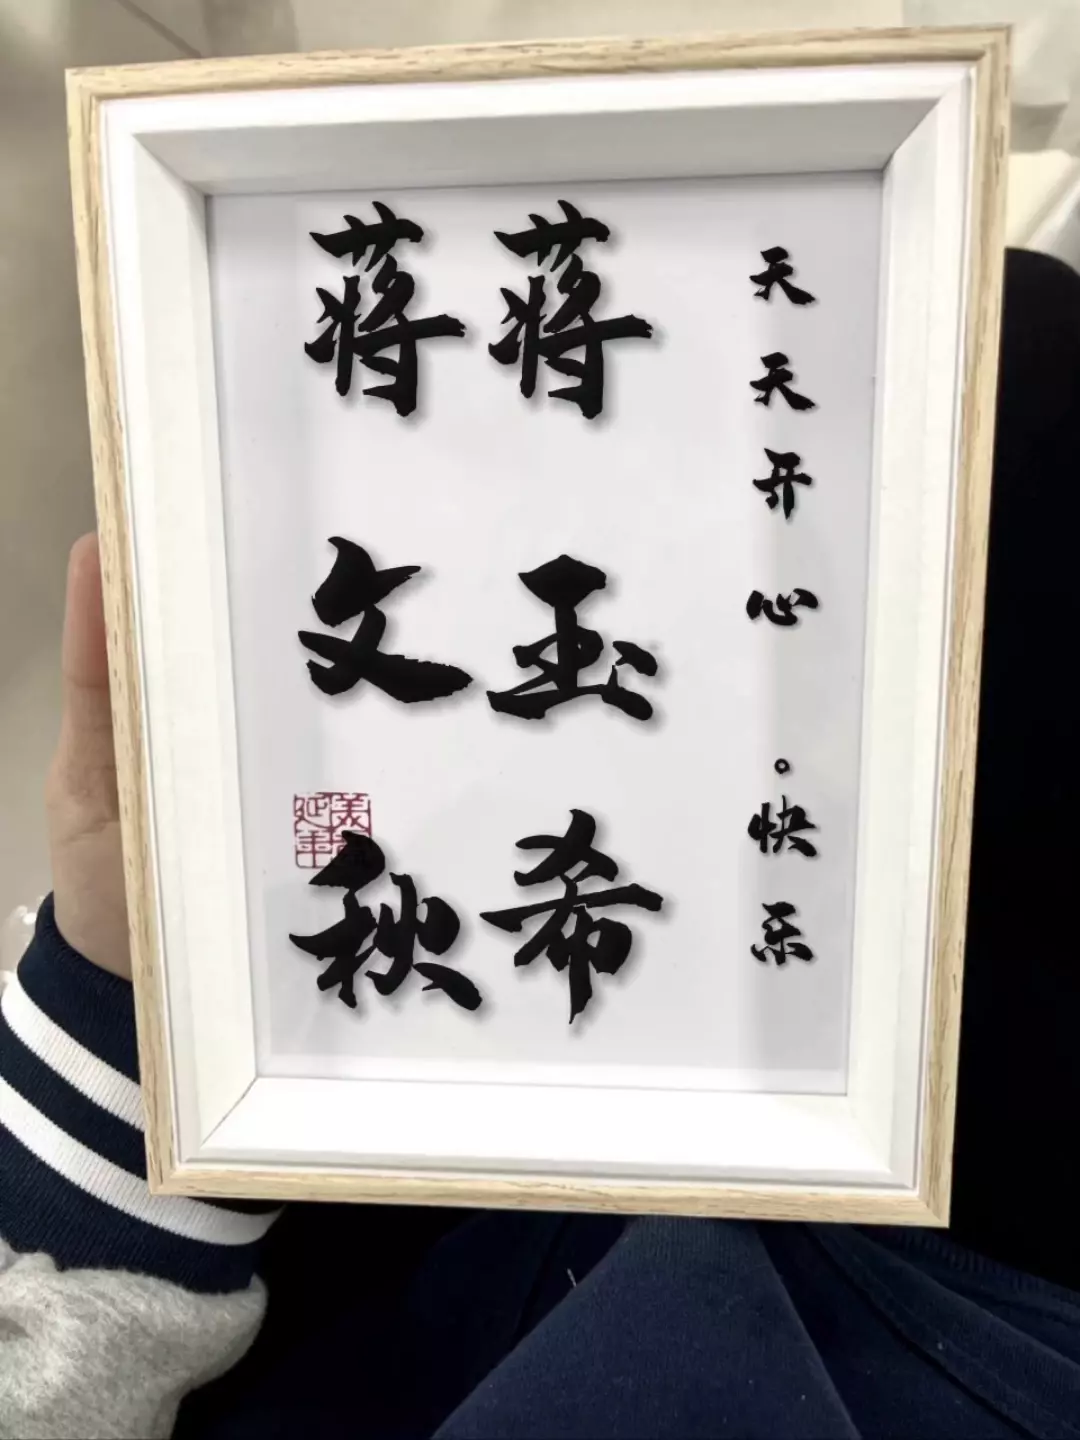 天天开心。快乐
蒋玉希
蒋文秋
延年